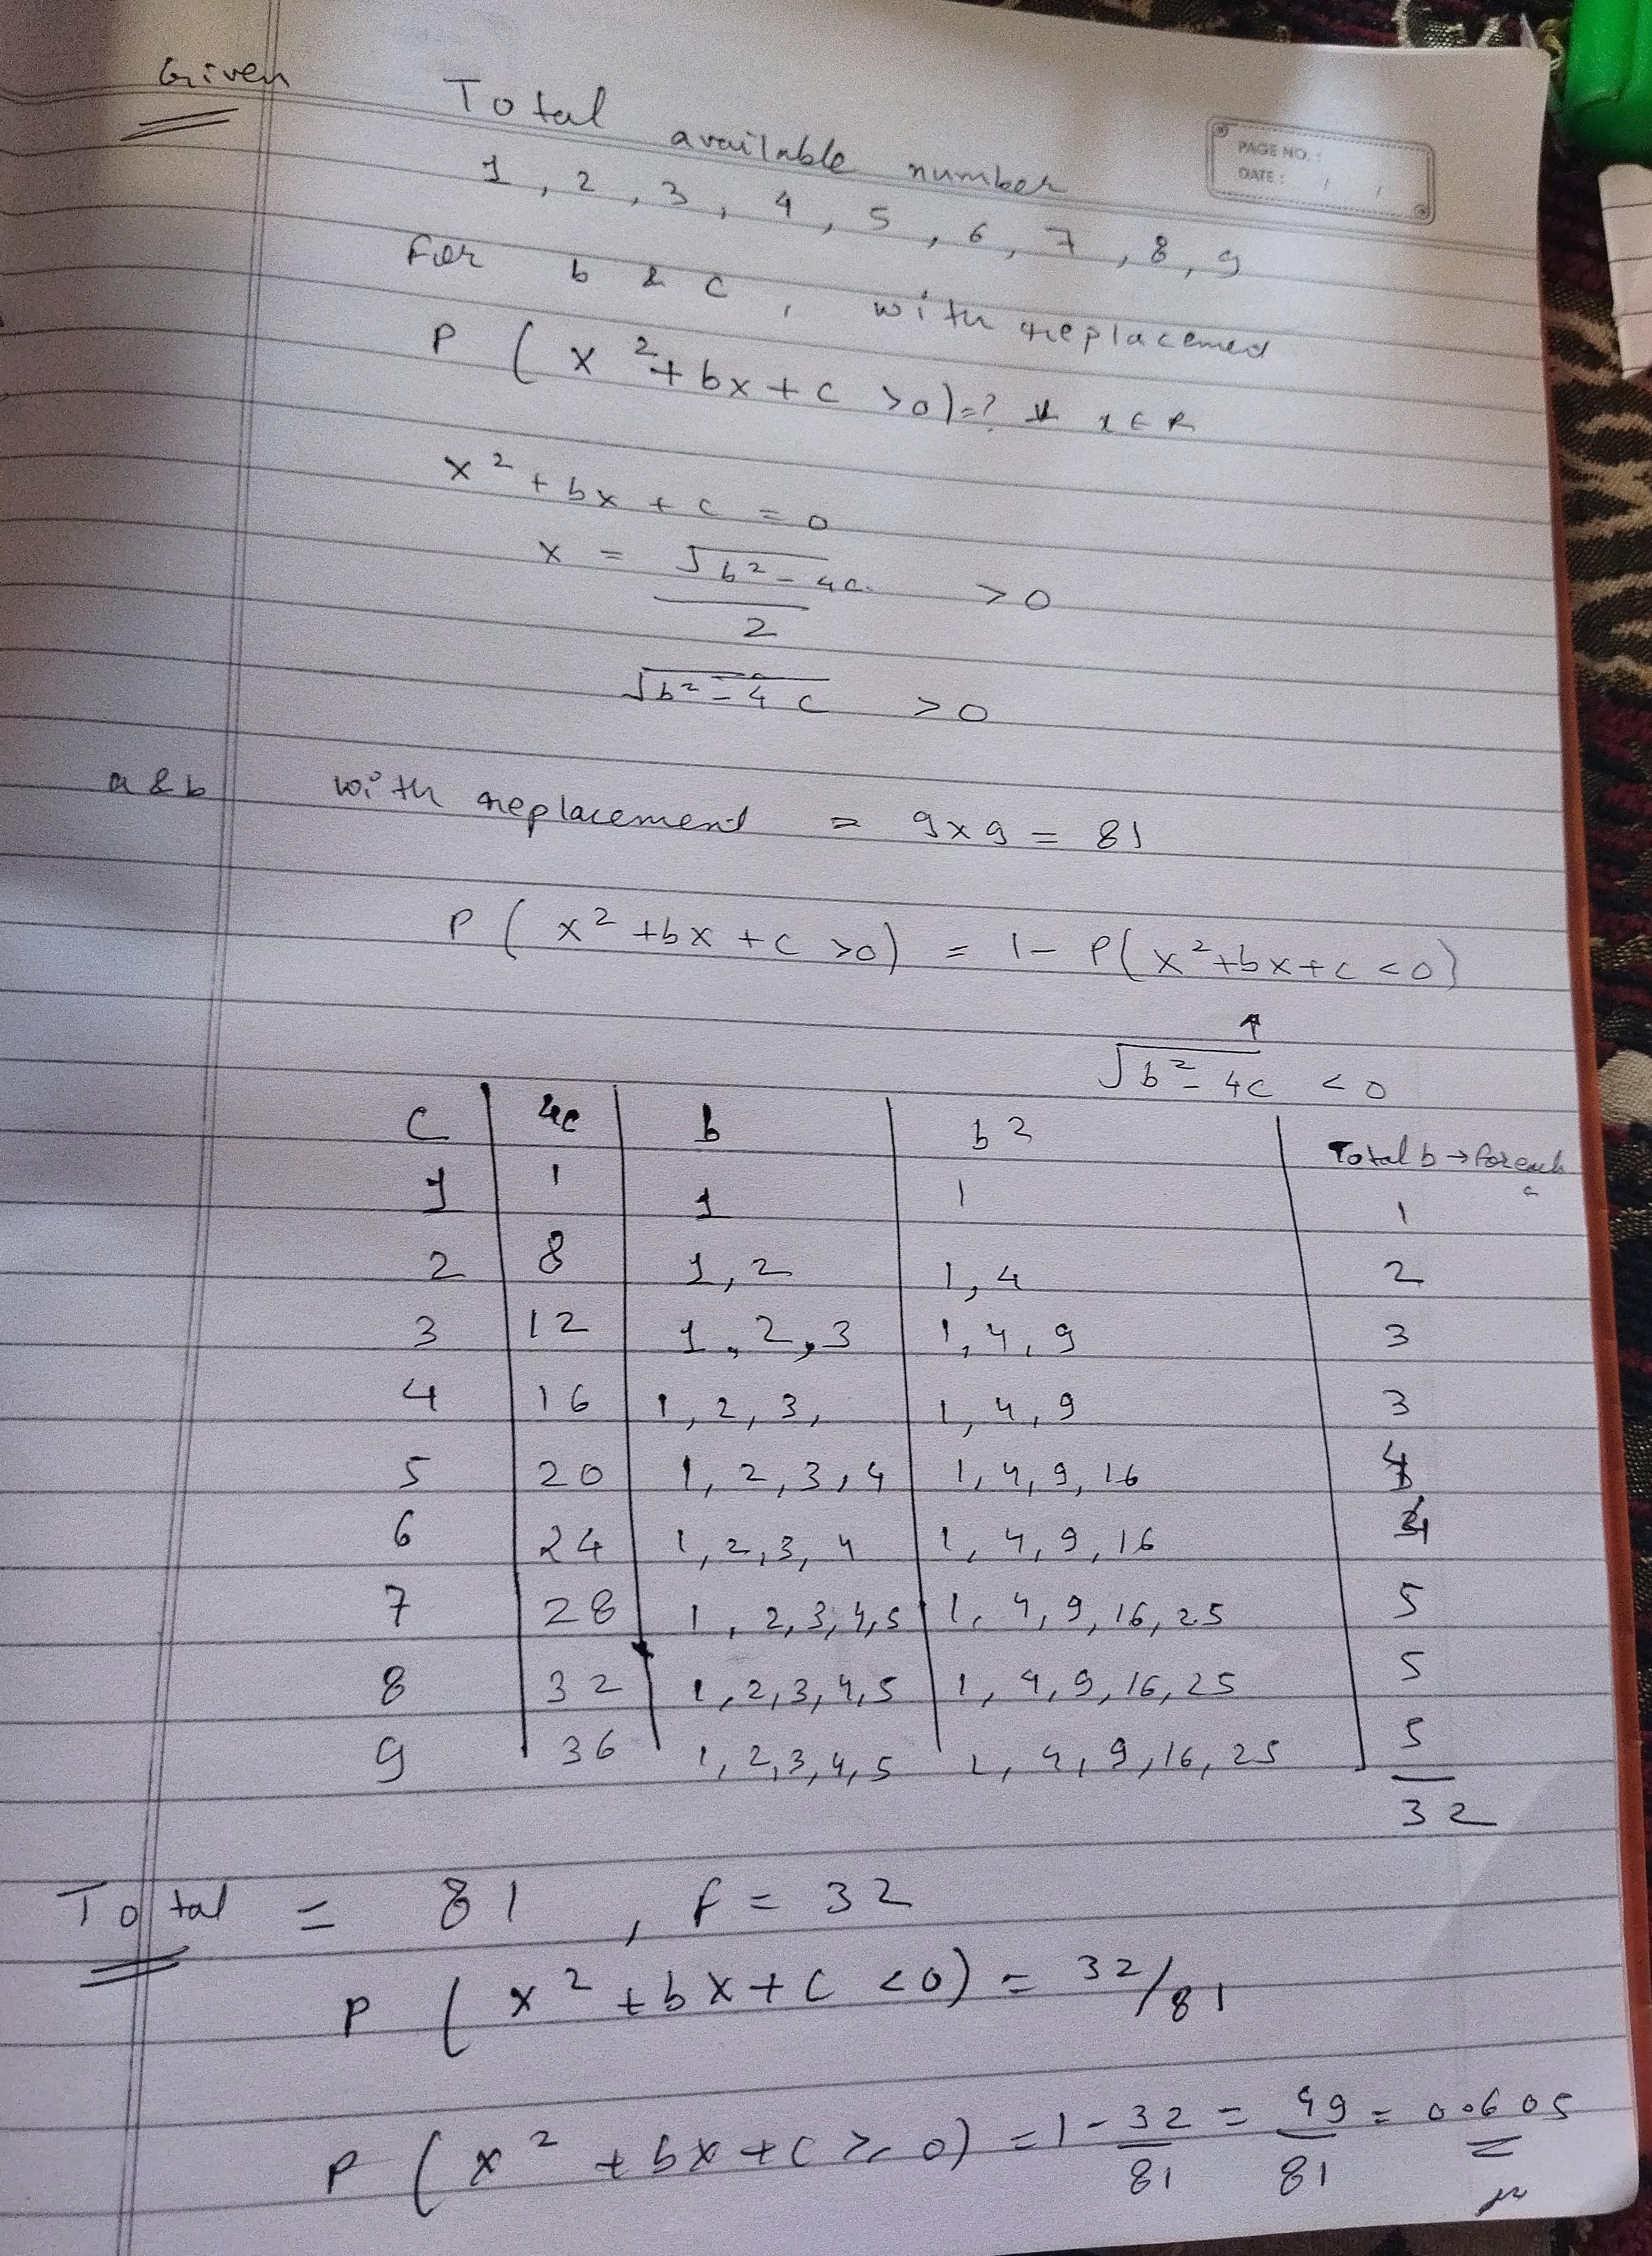 Given
Total available number
PAGE NO. :
DATE : / /
1, 2, 3, 4, 5, 6, 7, 8, 9
For b & c, with replacemed
P ( x² + bx + c >0) = ? ∀ x ∈ R
x² + bx + c = 0
x = √b² - 4c / 2 > 0
√b² - 4c > 0
a & b with replacement = 9×9 = 81
P ( x² + bx + c >0) = 1 - P( x² + bx + c <0)
↑
√b² - 4c < 0
c | 4c | b | b² | Total b → for each c
1 | 1 | 1 | 1 | 1
2 | 8 | 1, 2 | 1, 4 | 2
3 | 12 | 1, 2, 3 | 1, 4, 9 | 3
4 | 16 | 1, 2, 3, | 1, 4, 9 | 3
5 | 20 | 1, 2, 3, 4 | 1, 4, 9, 16 | 4
6 | 24 | 1, 2, 3, 4 | 1, 4, 9, 16 | 4
7 | 28 | 1, 2, 3, 4, 5 | 1, 4, 9, 16, 25 | 5
8 | 32 | 1, 2, 3, 4, 5 | 1, 4, 9, 16, 25 | 5
9 | 36 | 1, 2, 3, 4, 5 | 1, 4, 9, 16, 25 | 5
32
Total = 81, f = 32
P ( x² + bx + c <0) = 32/81
P ( x² + bx + c ≥ 0) = 1 - 32/81 = 49/81 = 0.605